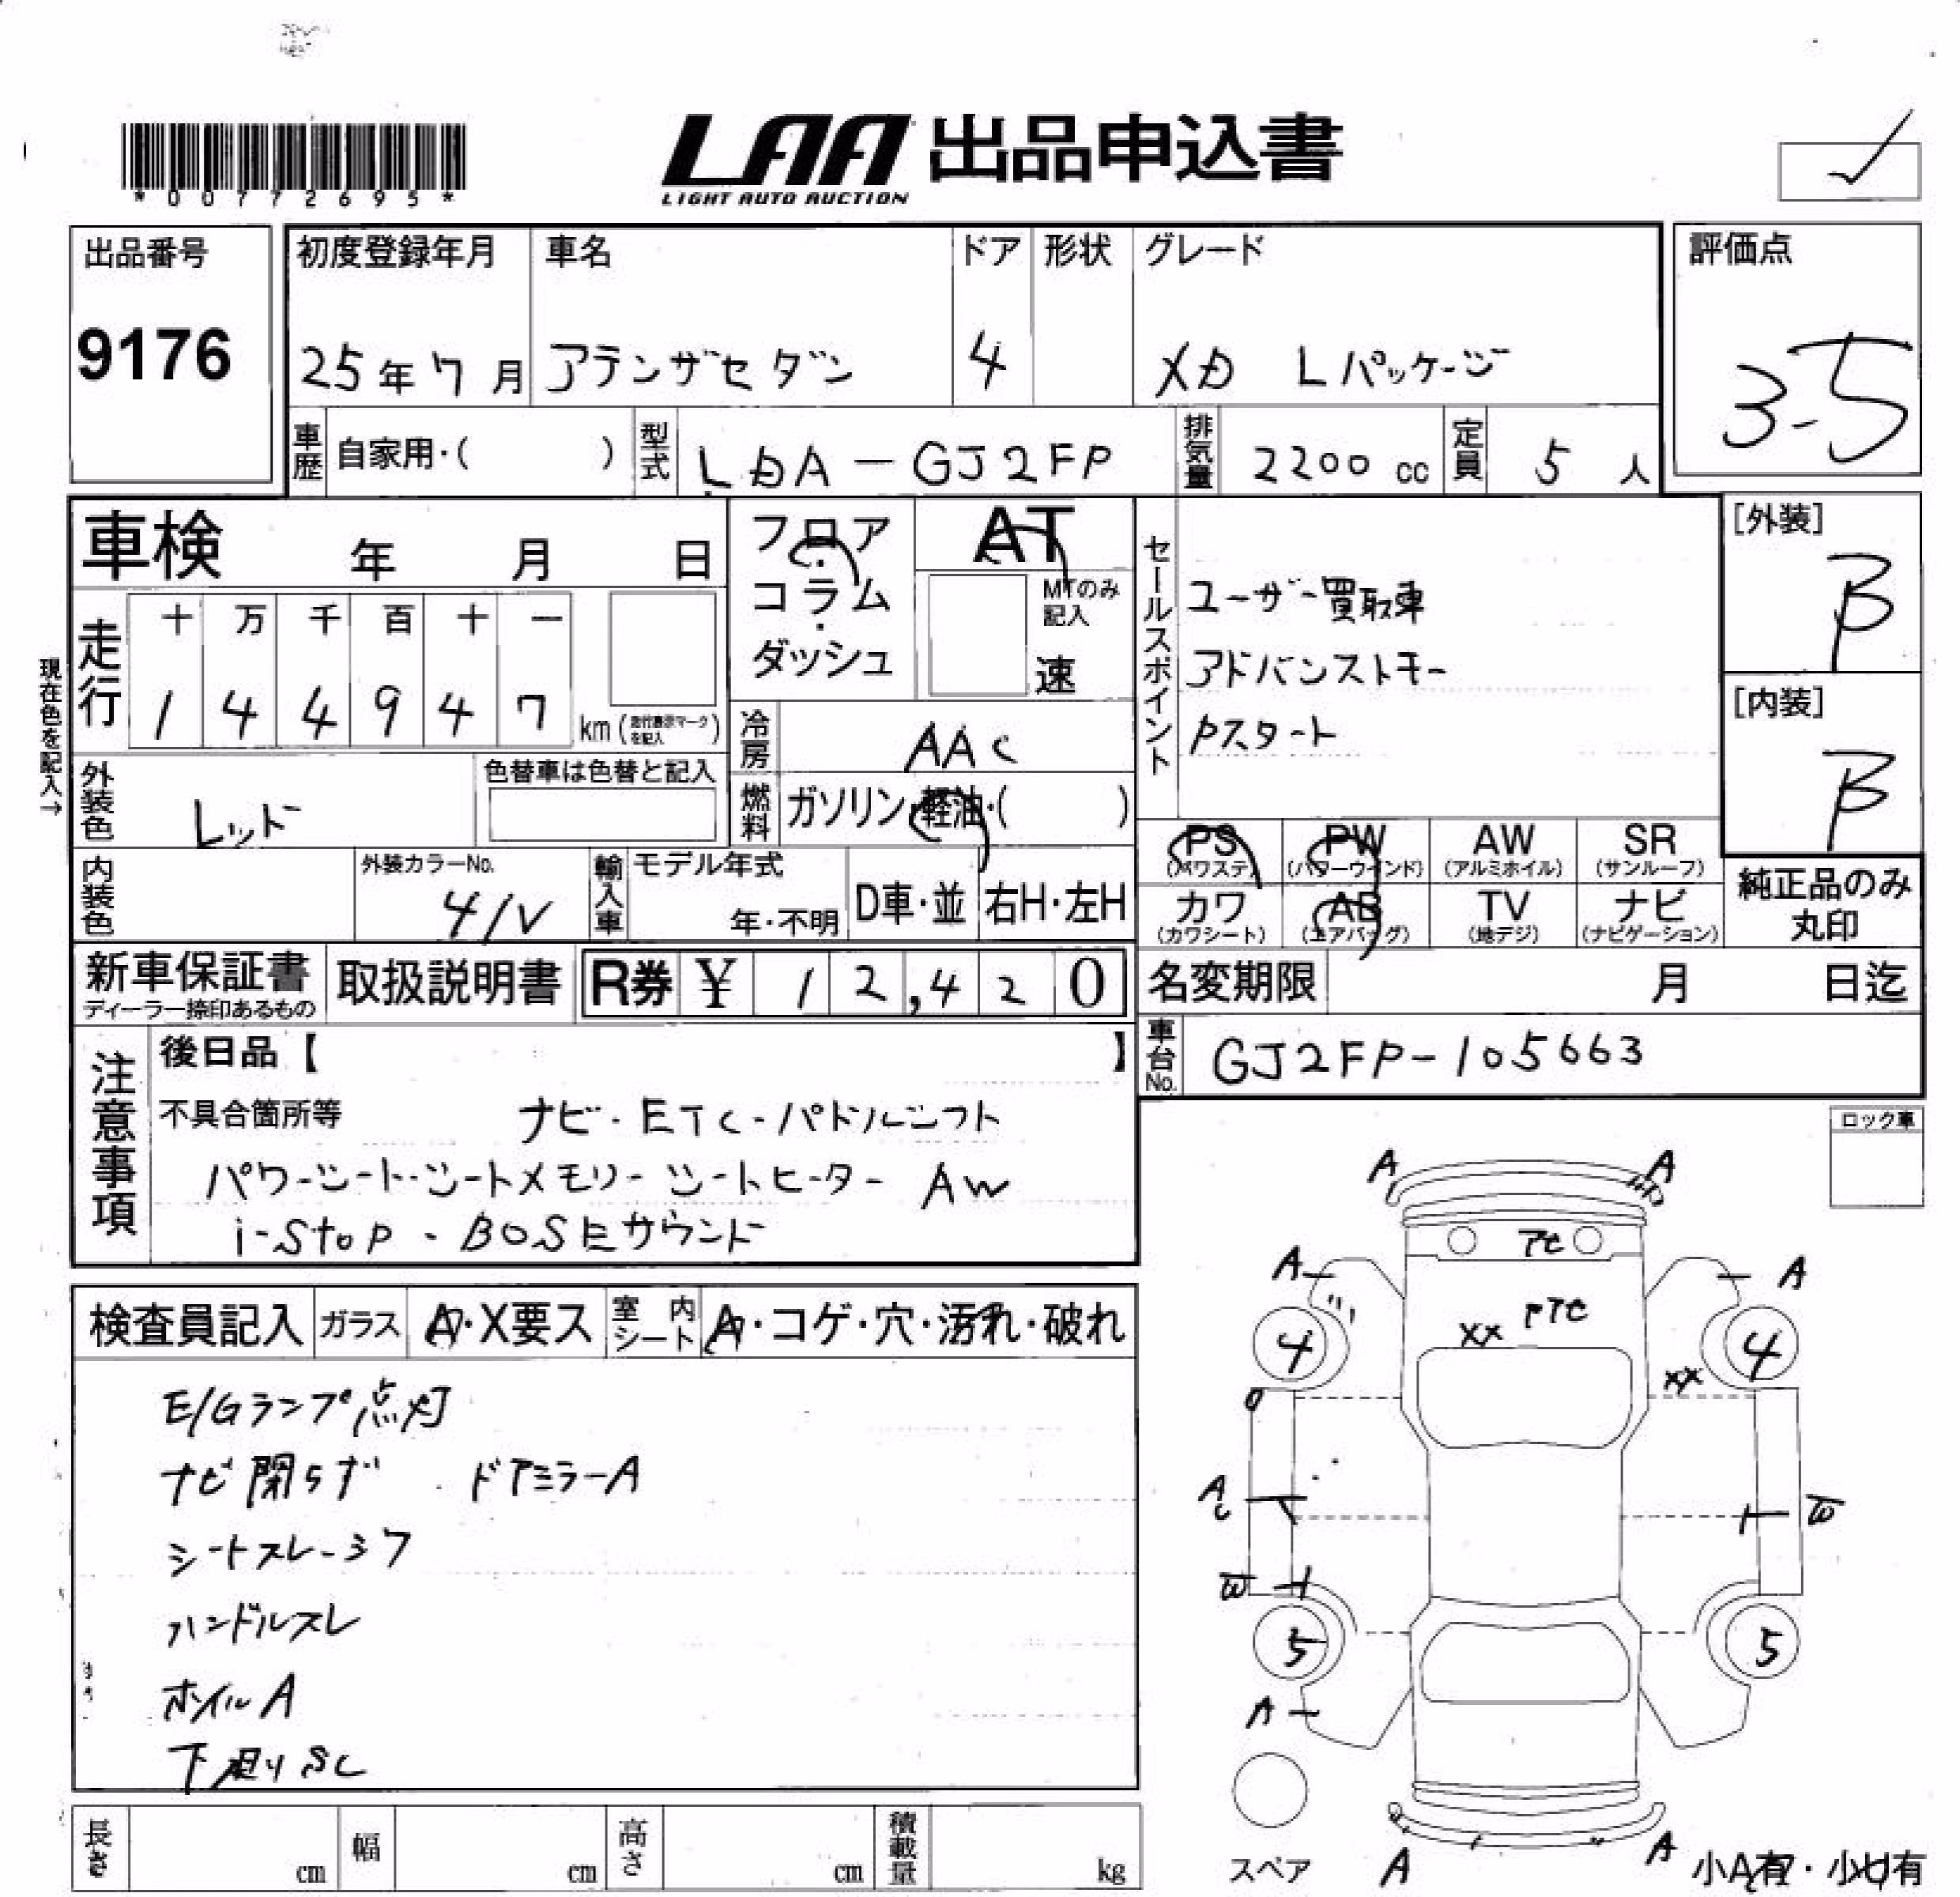 *00772695*
LAA 出品申込書
LIGHT AUTO AUCTION
出品番号
9176
初度登録年月 車名 ドア 形状 グレード
25年7月 アテンザセダン 4 XD Lパッケージ
評価点
3.5
車歴 自家用・( ) 型式 LDA-GJ2FP 排気量 2200 cc 定員 5 人
車検 年 月 日
フロア・コラム・ダッシュ
AT
MTのみ記入
速
セールスポイント
ユーザー買取車
アドバンストキー
Pスタート
[外装]
B
[内装]
B
現在色を記入→
走行
十 万 千 百 十 一
1 4 4 9 4 7 km (走行表示マークを記入)
冷房 AAC
外装色 レッド
色替車は色替と記入
燃料 ガソリン・軽油・( )
PS (パワステ) PW (パワーウインド) AW (アルミホイル) SR (サンルーフ)
カワ (カワシート) AB (エアバッグ) TV (地デジ) ナビ (ナビゲーション)
純正品のみ
丸印
内装色 外装カラーNo. 41V
輸入車 モデル年式 年・不明 D車・並 右H・左H
新車保証書 ディーラー捺印あるもの
取扱説明書
R券 ¥ 12,420
名変期限 月 日迄
車台No. GJ2FP-105663
注意事項
後日品【 】
不具合箇所等 ナビ・ETC・パドルシフト
パワーシート・シートメモリー シートヒーター AW
i-stop・BOSEサウンド
ロック車
検査員記入 ガラス A・X要ス 室内シート A・コゲ・穴・汚れ・破れ
E/Gランプ点灯
ナビ閉らず ドアミラーA
シートスレ・シワ
ハンドルスレ
ホイルA
下廻りSC
A A
アセ
A A
Pアセ
XX
4 4
XX
A
W
W
5 5
A
スペア
A A
小A有・小U有
長さ cm 幅 cm 高さ cm 積載量 kg